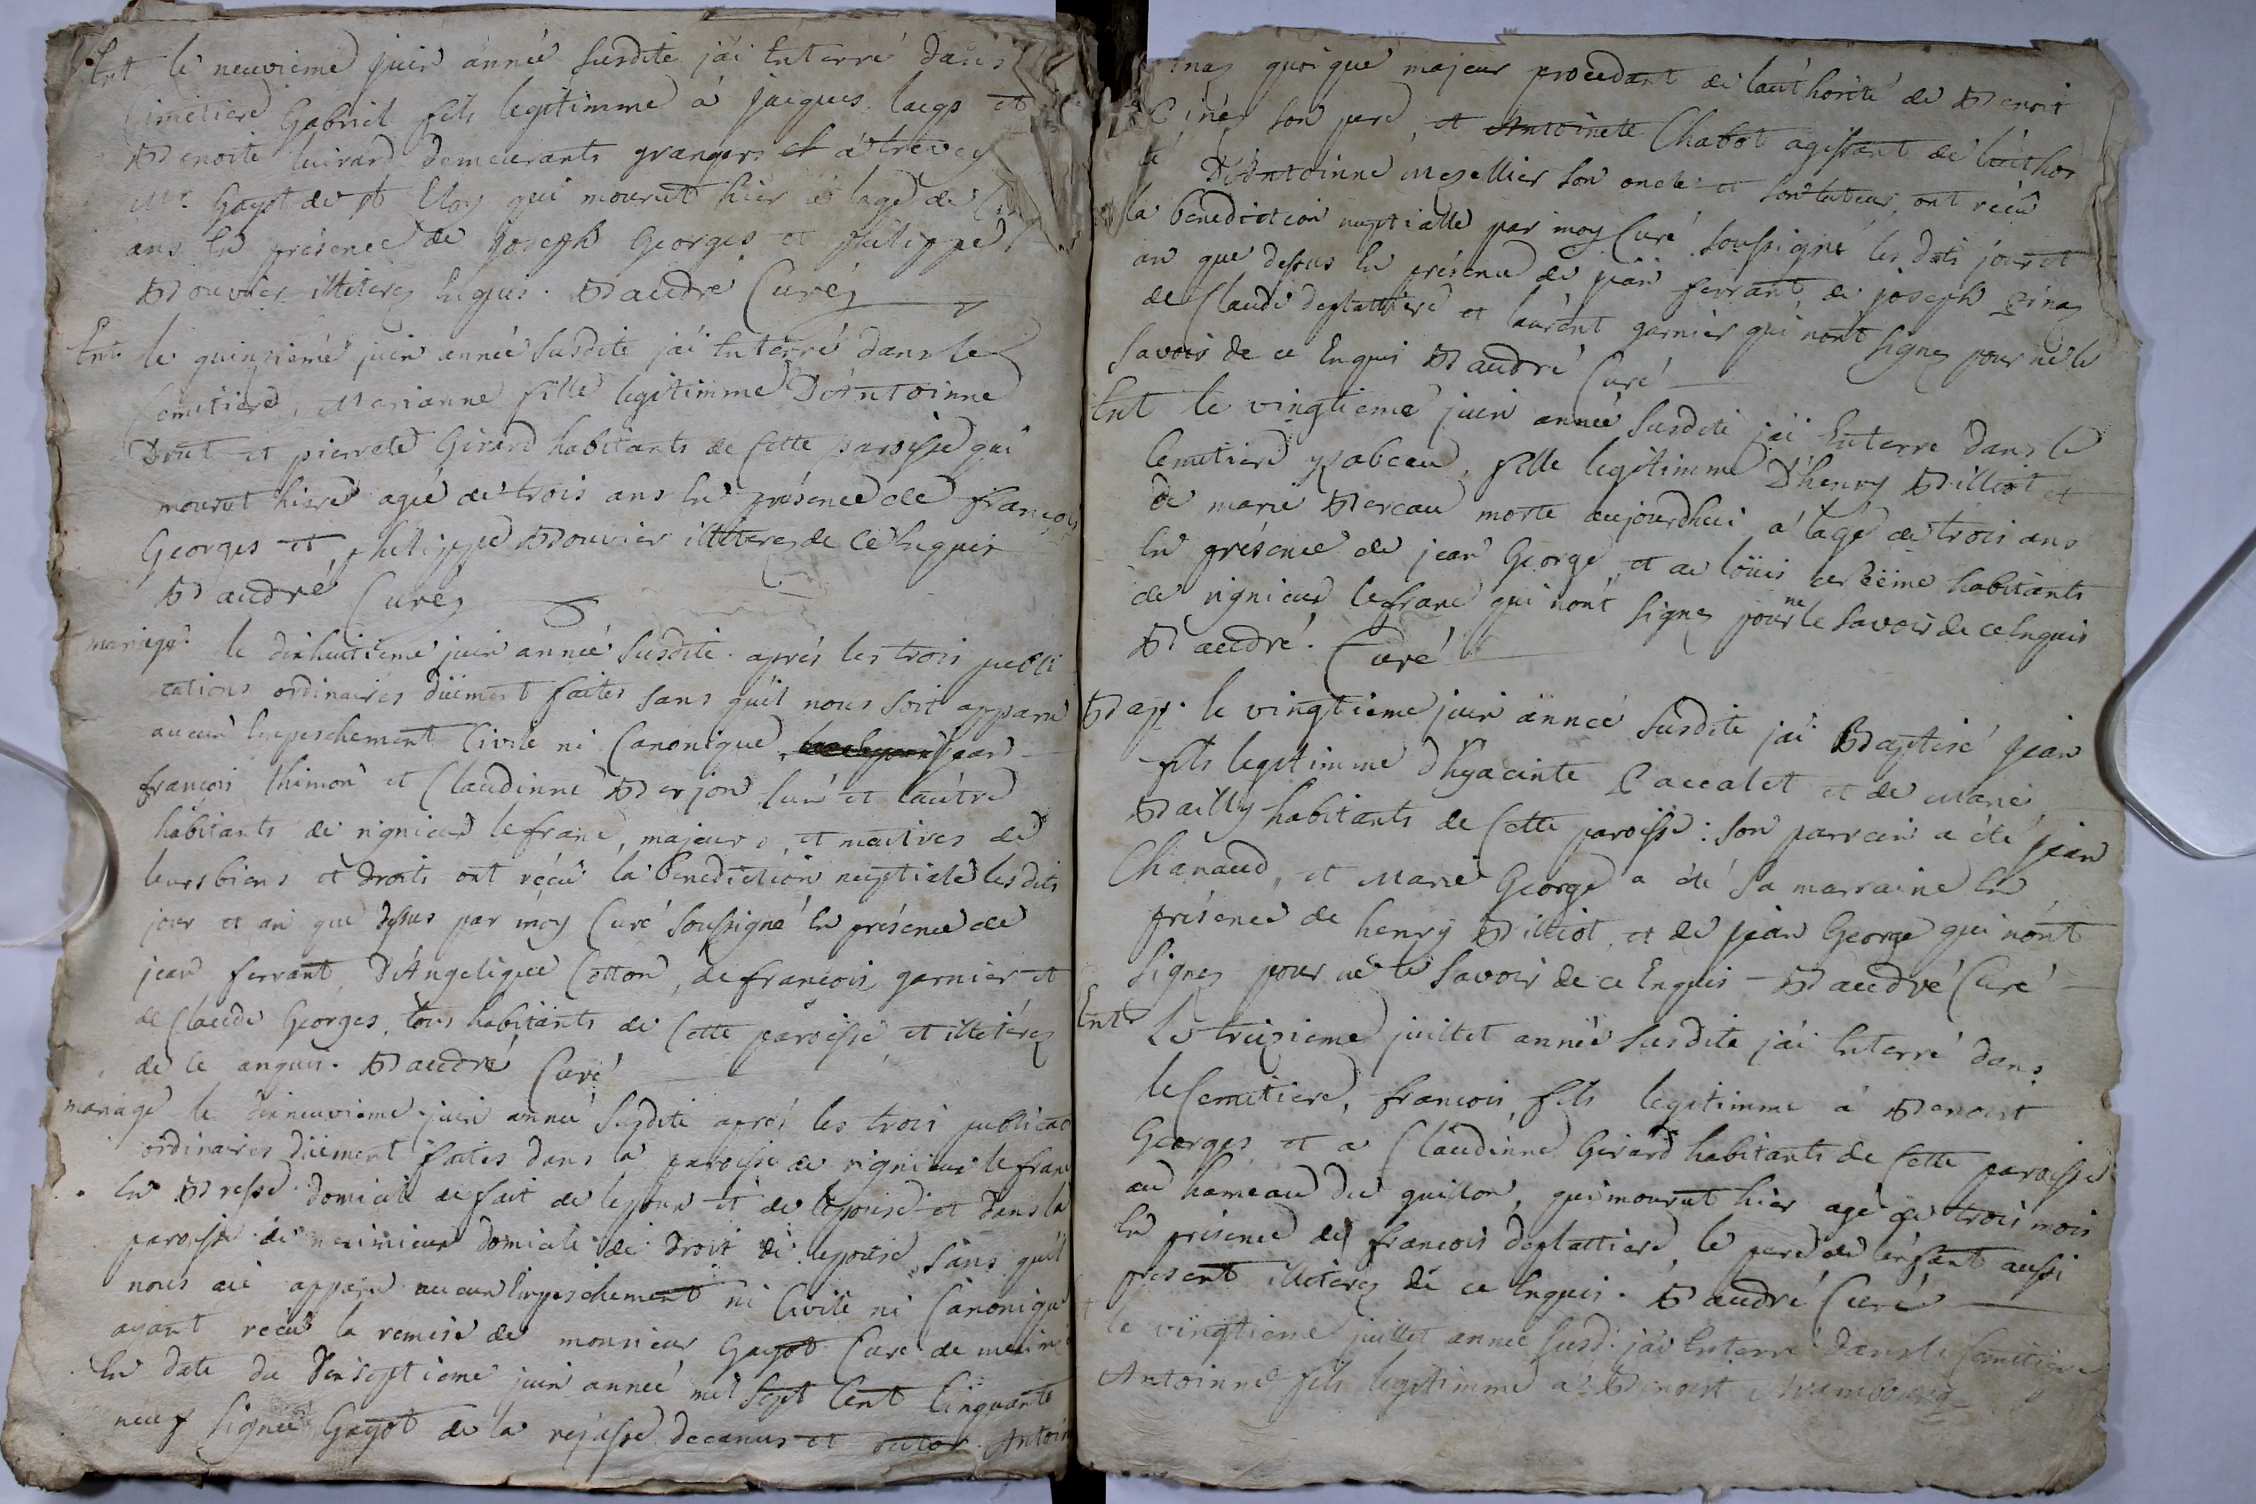 Ent le neuvieme juin année susdite j'ai enterré dans
Cimetiere Gabriel fils legitimme à jacques et
Benoite demeurants grangers
Mr. Gayot de st Eloy qui mourut hier à lage de
ans en présence de joseph Georges et philippe
Bouvier illiterez enquis. Baudré Curéz
Ent le quinsieme juin année susdite j'ai enterré dans le
Cemetiere, Marianne fille legitimme D'Antoinne
Drut et pierrete Girard habitants de Cette paroisse qui
mourut hiere agée de trois ans en présence de françois
Georges et philippe Bouvier illiterez de ce enquis
Baudré Curéz
mariage le dixhuitieme juin année susdite après les trois publi
cations ordinaires düement faites sans qu'il nous soit apparu
aucun Empeschement Civile ni Canonique jean
françois thimon et Claudinne Berjon lun et lautre
habitants de rignieux lefranc, majeurs, et maitres de
leurs biens et droits ont réçu la benediction nuptiale lesdits
jour et an que dessus par moy Curé soussigné en présence de
jean ferrant, D'Angelique Cotton, de francois garnier et
de Claude Georges, tous habitants de Cette paroisse et illetérez
de ce anquis. Baudré Curé
mariage le dixneuvieme juin année susdite après les trois publicat
ordinaires düement faites dans la paroisse de rignieux lefranc
en Bresse domicile de fait de lepoux et de lepouse et dans la
paroisse de meximieux domicile de droit de lepouse sans qu'il
nous ait apparu aucun Empeschement ni Civile ni Canonique
ayant réçu la remise de monsieur Gayot Curé de mexim
en date du dixseptieme juin année mil sept Cent Cinquante
neuf signée Gayot de la rejasse decanus et rector. Antoin
pinaz quoique majeur procedant de lauthorité de Benoit
Pinéz son pere, et Antoinete Chabot agissant de lauthor
té D'Antoinne Mezellier son oncle et son tuteur, ont réçû
la benediction nuptialle par moy Curé soussigné les dits jour et
an que dessus en présence de jean ferrant, de joseph pinaz
de Claude deplattiere et laurent garnier qui n'ont signez pour ne le
savoir de ce enquis Baudré Curé
Ent le vingtieme juin année susdite j'ai Enterré dans le
Cemetiere ysabeau, fille legitimme D'henry Billiot et
de marie Bereau morte aujourdhui a lage de trois ans
en présence de jean George, et de löuis habitants
de rignieux lefranc qui n'ont signez pour ne le savoir de ce enquis
Baudré. Curé
Bap. le vingtieme juin année susdite j'ai Baptisé jean
fils legitimme d'hyacinte Paccalet et de Marie
Bailly habitants de Cette paroisse: son parrain a été jean
Chanaud, et Marie George a été sa marraine en
présence de henry Billiot, et de jean George qui n'ont
signez pour ne le savoir de ce Enquis - Baudré Curé
Ent Le treizieme juillet année susdite j'ai Enterré dans
le Cemetiere, francois, fils legitimme a Benoist
Georges et a Claudinne Girard habitants de Cette paroisse
au hameau du guillon, qui mourut hier agé de trois mois
en présence de francois deplattiere, le pere de lenfant aussi
present illiterez de ce enquis. Baudré Curé
le vingtieme juillet année susd: j'ai Enterré dans le Cemetiere
Antoinne fils legitimme a Benoist